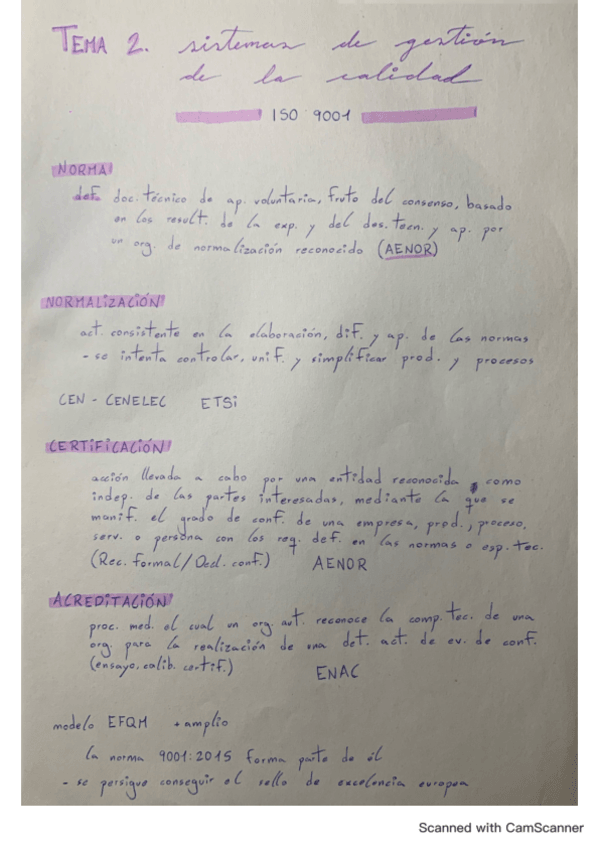 TEMA 2. sistemas de gestión
de la calidad
ISO 9001
NORMA
def. doc. técnico de ap. voluntaria, fruto del consenso, basado
en los result. de la exp. y del des. tecn. y ap. por
un org. de normalización reconocido (AENOR)
NORMALIZACIÓN
act. consistente en la elaboración, dif. y ap. de las normas
- se intenta controlar, unif. y simplificar prod. y procesos
CEN - CENELEC ETSi
CERTIFICACIÓN
acción llevada a cabo por una entidad reconocida como
indep. de las partes interesadas, mediante la que se
manif. el grado de conf. de una empresa, prod., proceso,
serv. o persona con los req. def. en las normas o esp. tec.
(Rec. formal/Decl. conf.) AENOR
ACREDITACIÓN
proc. med. el cual un org. aut. reconoce la comp. tec. de una
org. para la realización de una det. act. de ev. de conf.
(ensayo, calib. certif.) ENAC
modelo EFQM + amplio
la norma 9001:2015 forma parte de él
- se persigue conseguir el sello de excelencia europea
Scanned with CamScanner